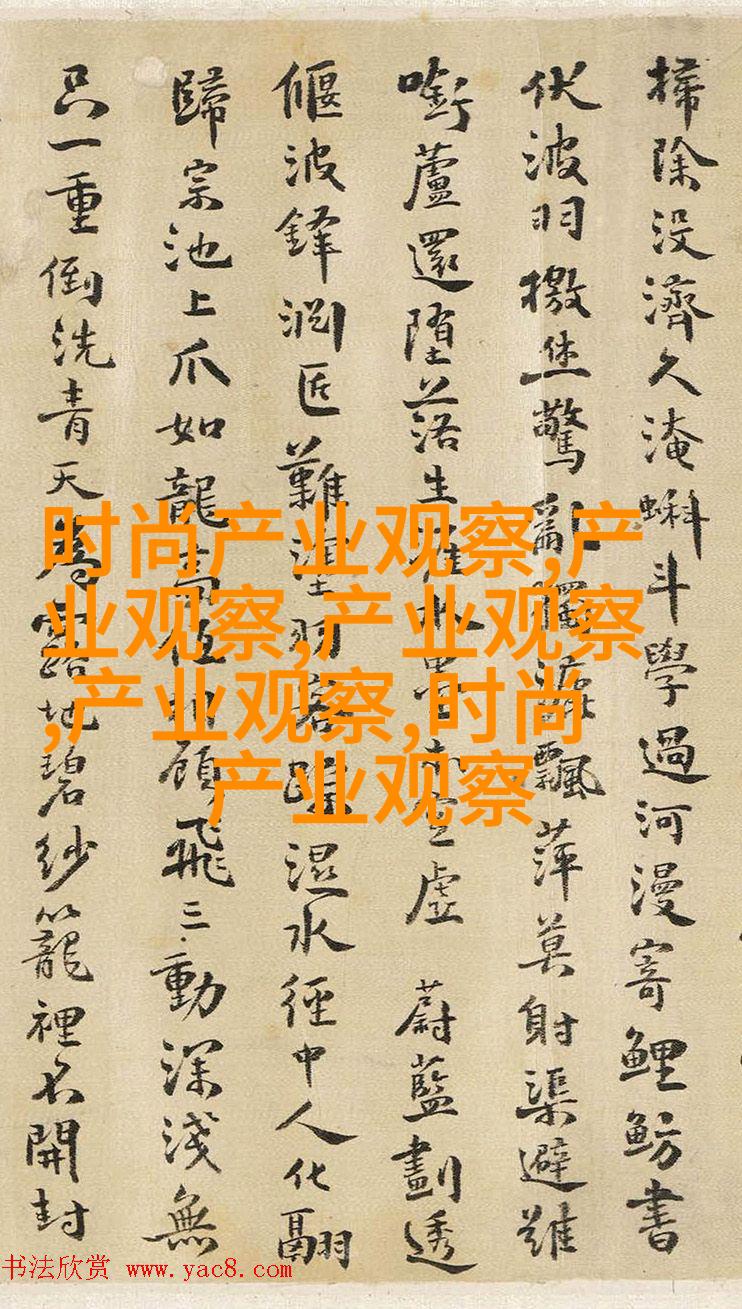 掃除沒濟久淹蝌斗學過河漫寄鯉魴書
伏波羽檄驚飄萍莫射渠避難
蘆還墮落生水空虛 蔚藍劃透
偃波鋒難濕水經中人化翮
歸宗池上爪如龍顧飛三動深淺無
只一重倒洗青天露地碧紗籠裡不開封
时尚产业观察,产
业观察,产业观察
,产业观察,时尚
产业观察
书法欣赏 www.yac8.com